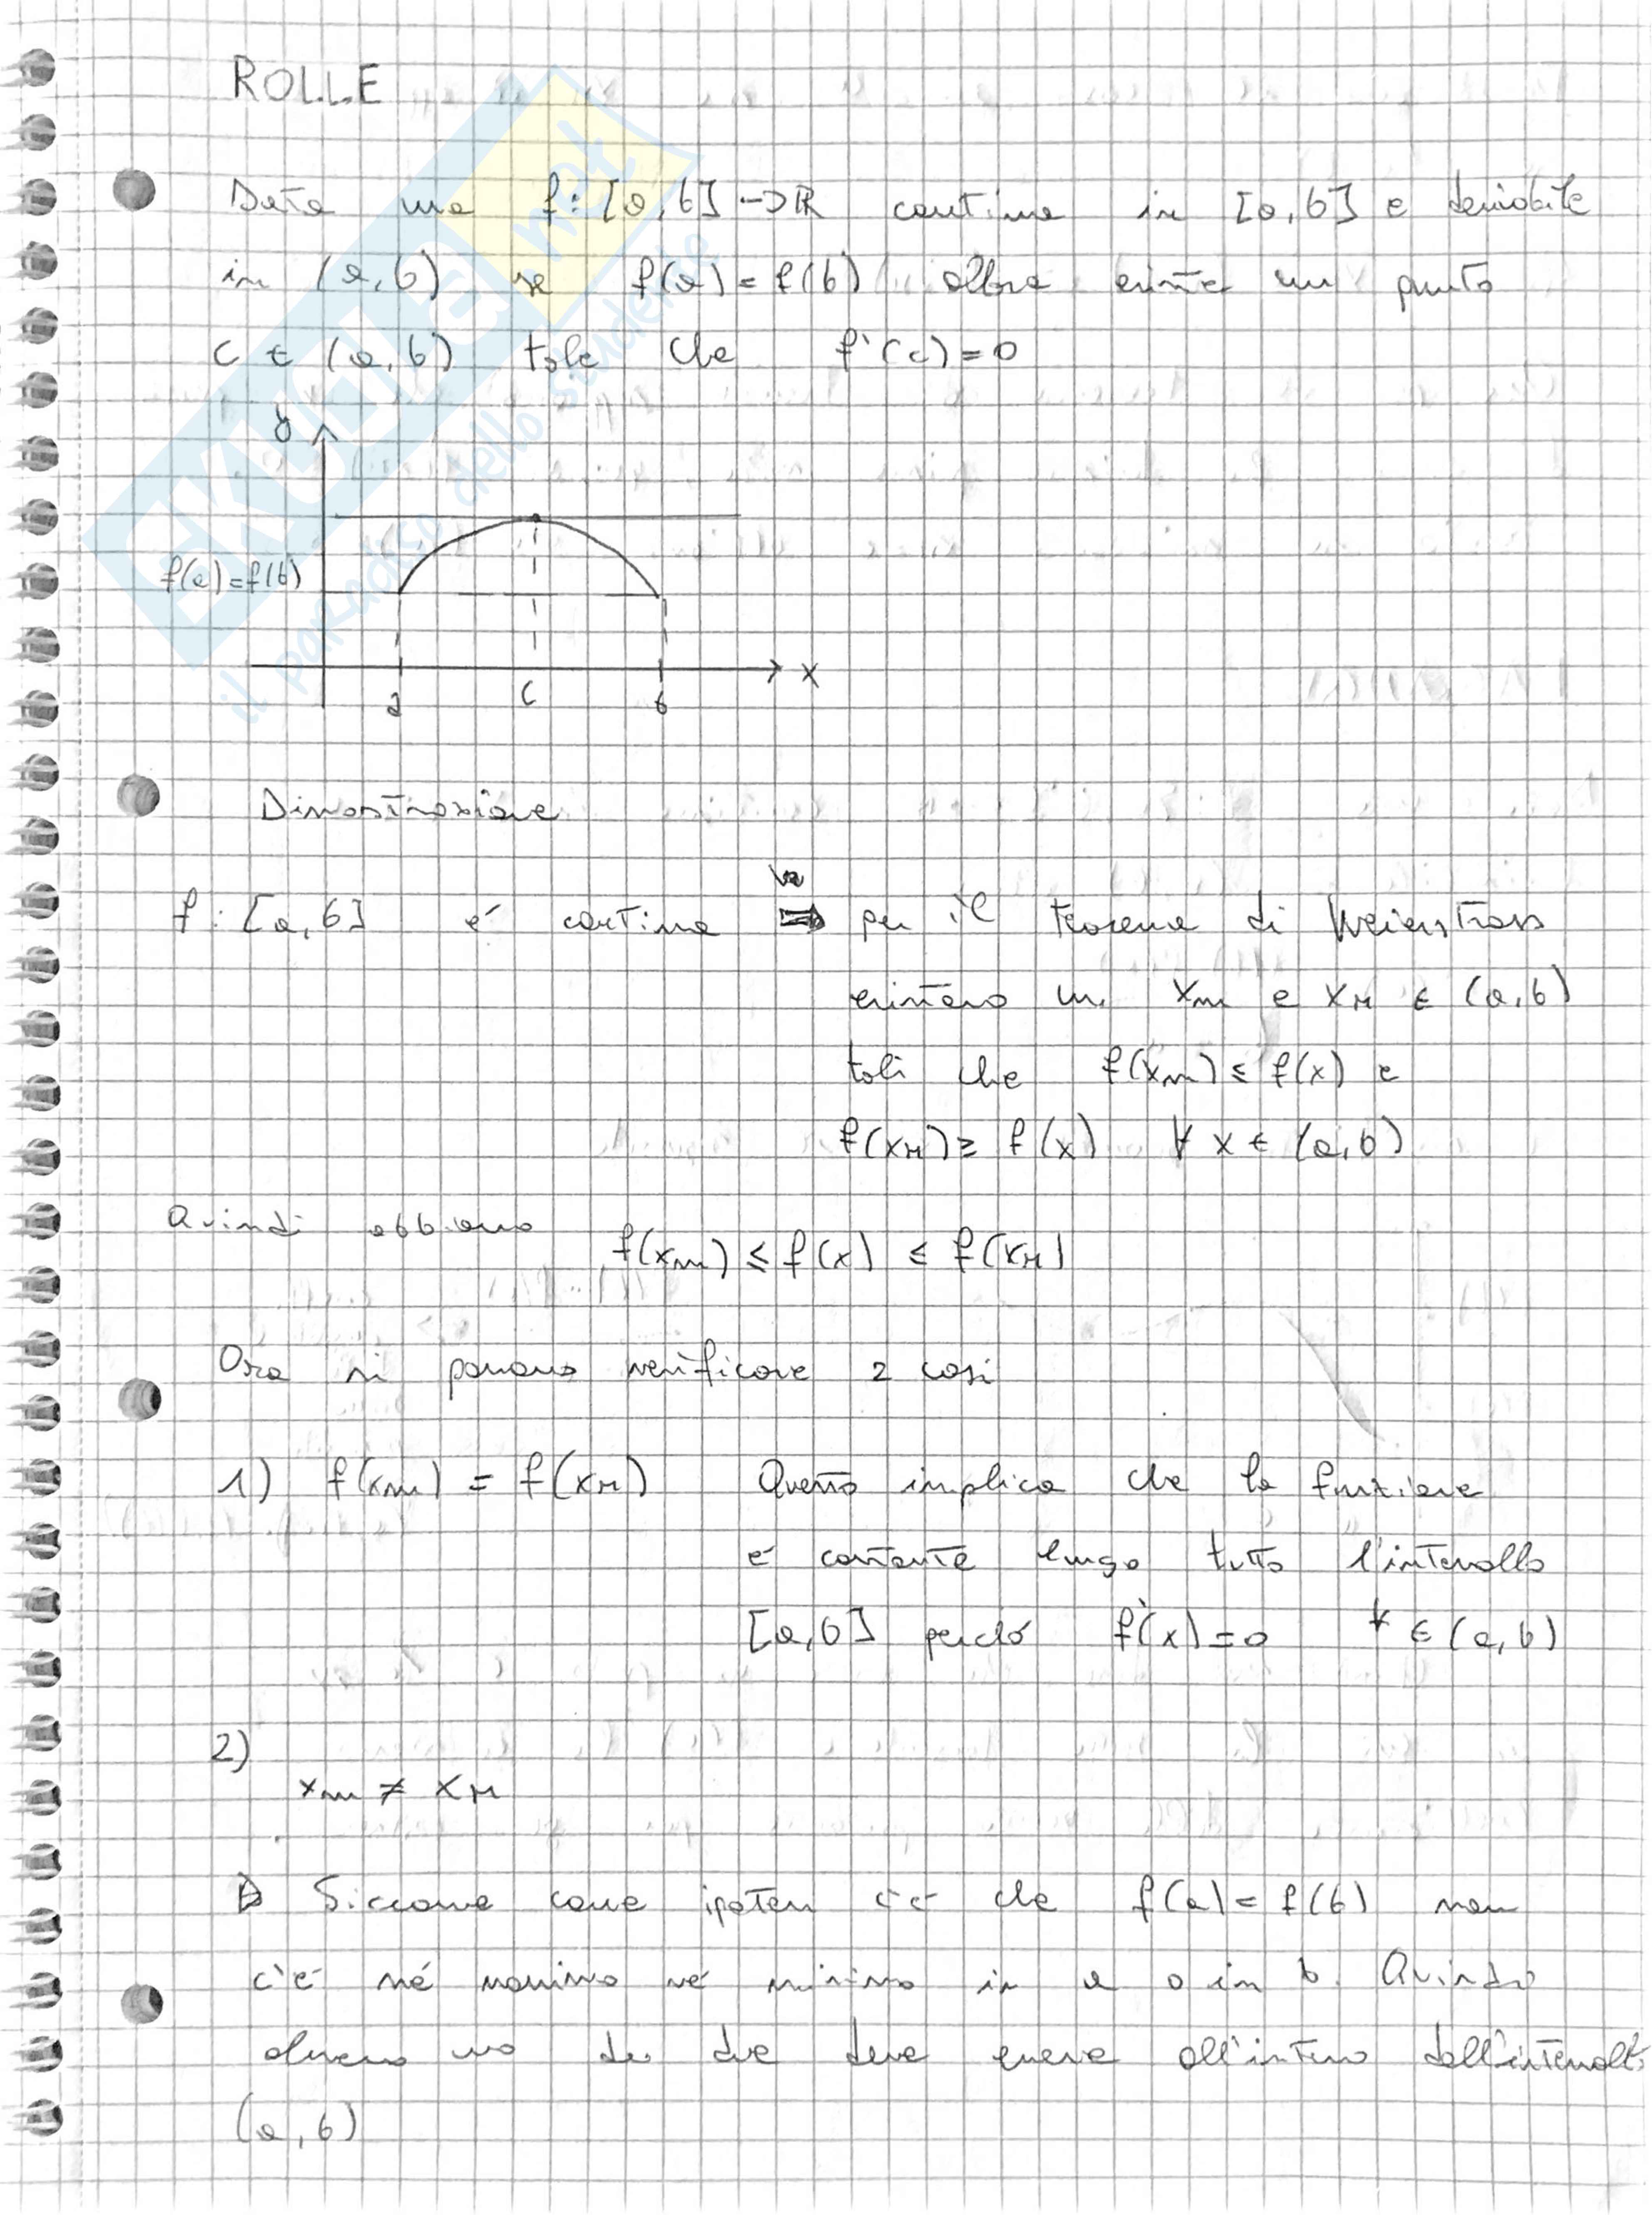 ROLLE
Data una f: [a,b] -> ℝ continua in [a,b] e derivabile
in (a,b) se f(a) = f(b) allora esiste un punto
c ∈ (a,b) tale che f'(c) = 0
y
f(a) = f(b)
x
a c b
Dimostrazione
f: [a,b] è continua => per il teorema di Weierstrass
esistono un xm e xM ∈ (a,b)
tali che f(xm) ≤ f(x) e
f(xM) ≥ f(x) ∀ x ∈ (a,b)
Quindi abbiamo
f(xm) ≤ f(x) ≤ f(xM)
Ora si possono verificare 2 casi
1) f(xm) = f(xM) Questo implica che la funzione
è costante lungo tutto l'intervallo
[a,b] perciò f'(x) = 0 ∀ ∈ (a,b)
2)
xm ≠ xM
Siccome come ipotesi c'è che f(a) = f(b) non
c'è né massimo né minimo in a o in b. Quindi
almeno uno dei due deve essere all'interno dell'intervallo
(a,b)
SKUOLA.net
il paradiso dello studente